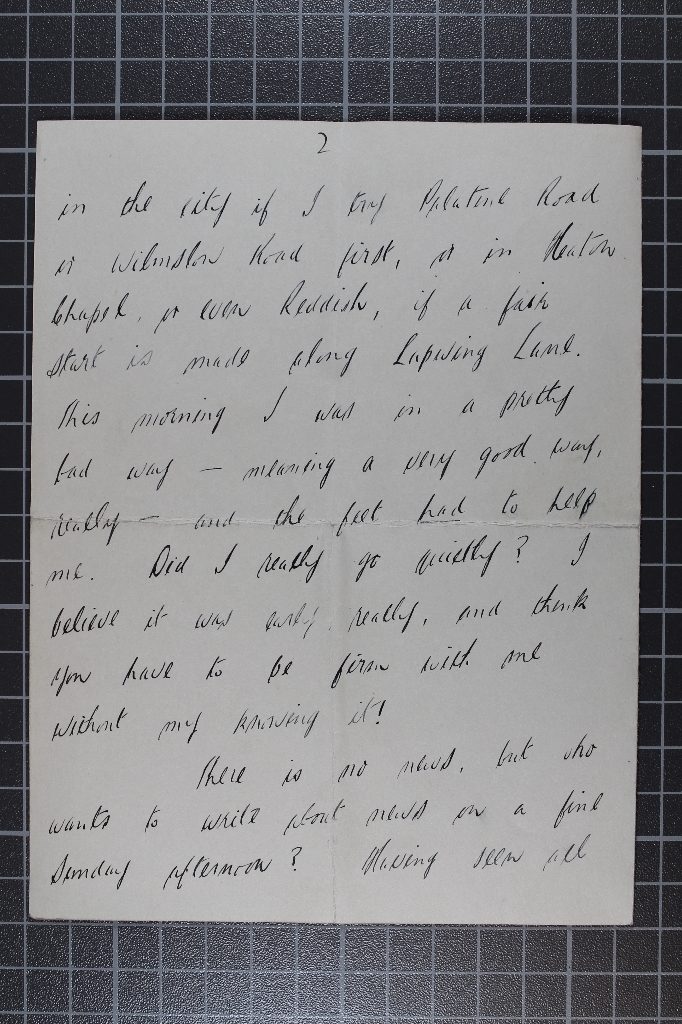 2
in the city if I try Palatine Road
or Wilmslow Road first, or in Heaton
Chapel, or even Reddish, if a fair
start is made along Lapwing Lane.
This morning I was in a pretty
bad way — meaning a very good way,
really — and the feet had to help
me. Did I really go quietly? I
believe it was early, really, and think
you have to be firm with me
without my knowing it!
There is no news, but who
wants to write about news on a fine
Sunday afternoon? Having seen all